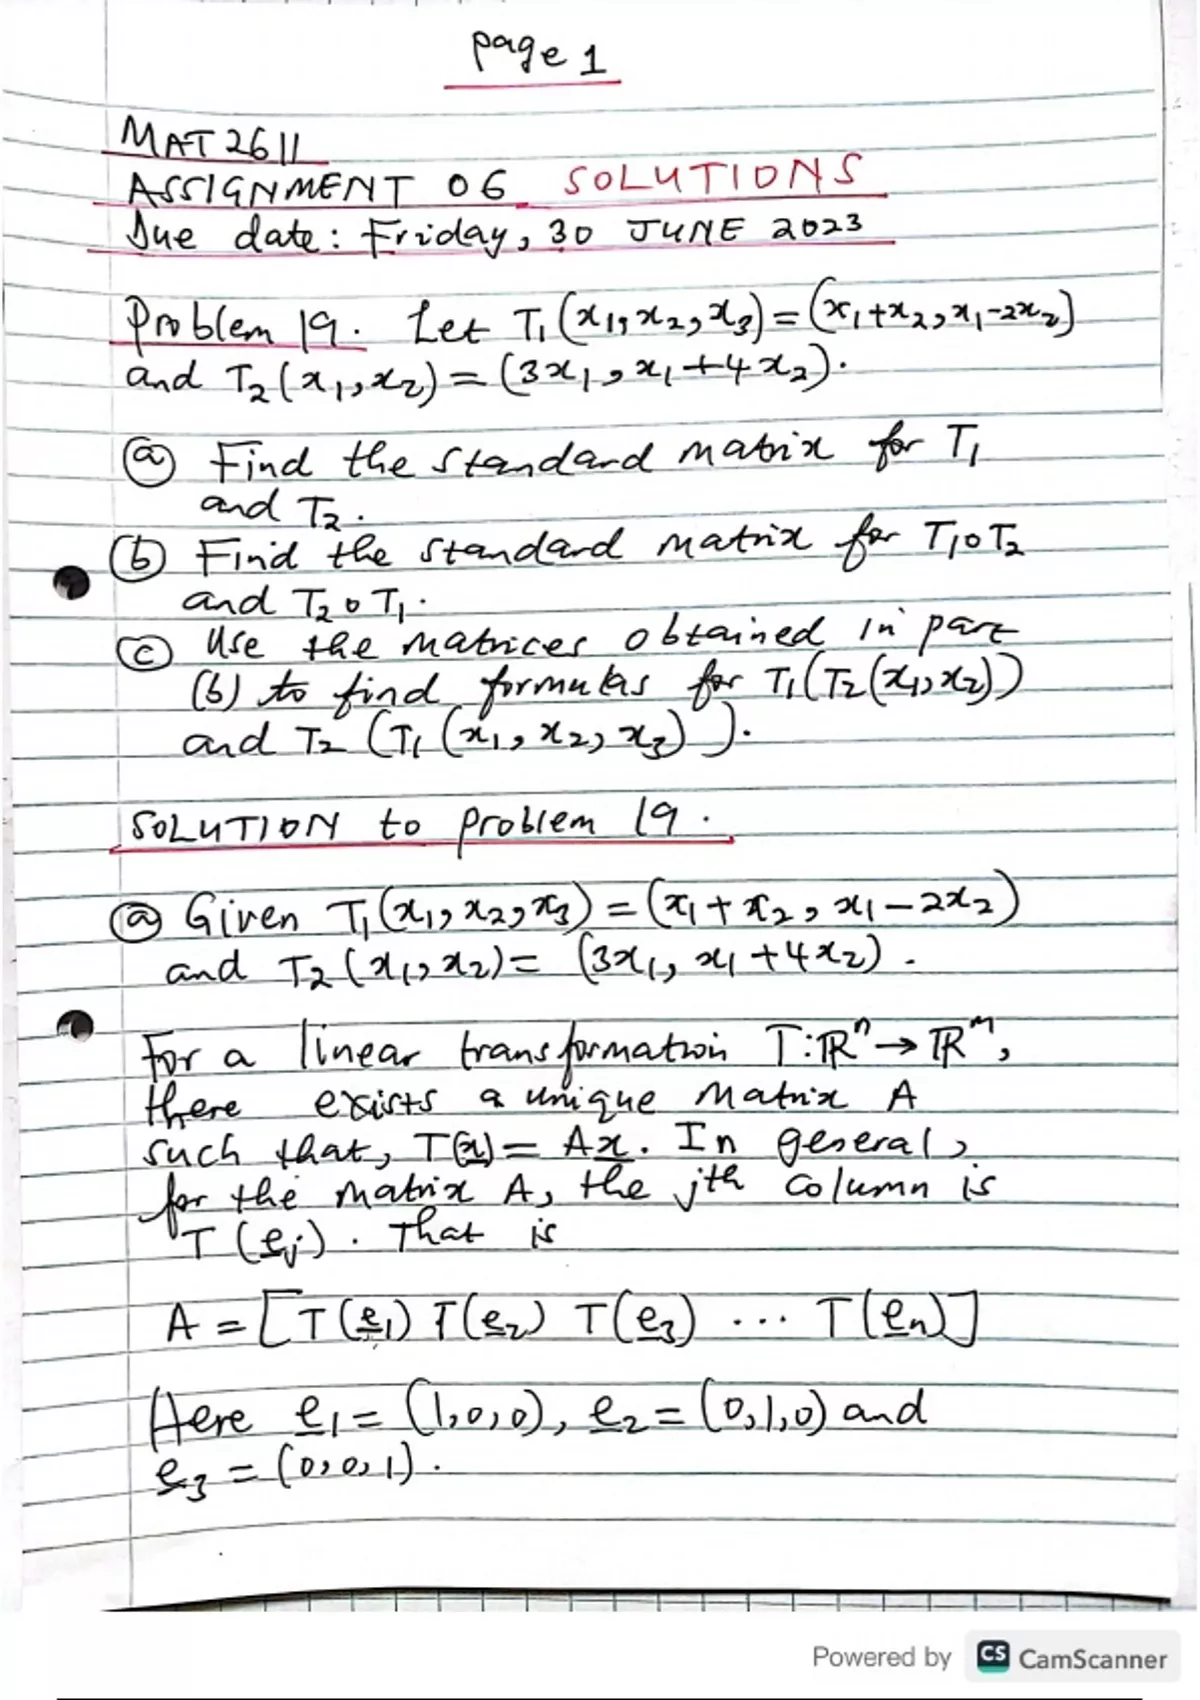 page 1
MAT 2611
ASSIGNMENT 06 SOLUTIONS
Due date: Friday, 30 JUNE 2023
Problem 19. Let T₁(x₁, x₂, x₃) = (x₁+x₂, x₁-2x₂)
and T₂(x₁, x₂) = (3x₁, x₁+4x₂).
(a) Find the standard matrix for T₁
and T₂.
(b) Find the standard matrix for T₁∘T₂
and T₂∘T₁.
(c) Use the matrices obtained in part
(b) to find formulas for T₁(T₂(x₁, x₂))
and T₂(T₁(x₁, x₂, x₃)).
SOLUTION to problem 19.
(a) Given T₁(x₁, x₂, x₃) = (x₁+x₂, x₁-2x₂)
and T₂(x₁, x₂) = (3x₁, x₁+4x₂).
For a linear transformation T:ℝⁿ→ℝᵐ,
there exists a unique matrix A
such that, T(x) = Ax. In general,
for the matrix A, the jth column is
T(eⱼ). That is
A = [T(e₁) T(e₂) T(e₃) ... T(eₙ)]
Here e₁ = (1,0,0), e₂ = (0,1,0) and
e₃ = (0,0,1).
Powered by CS CamScanner